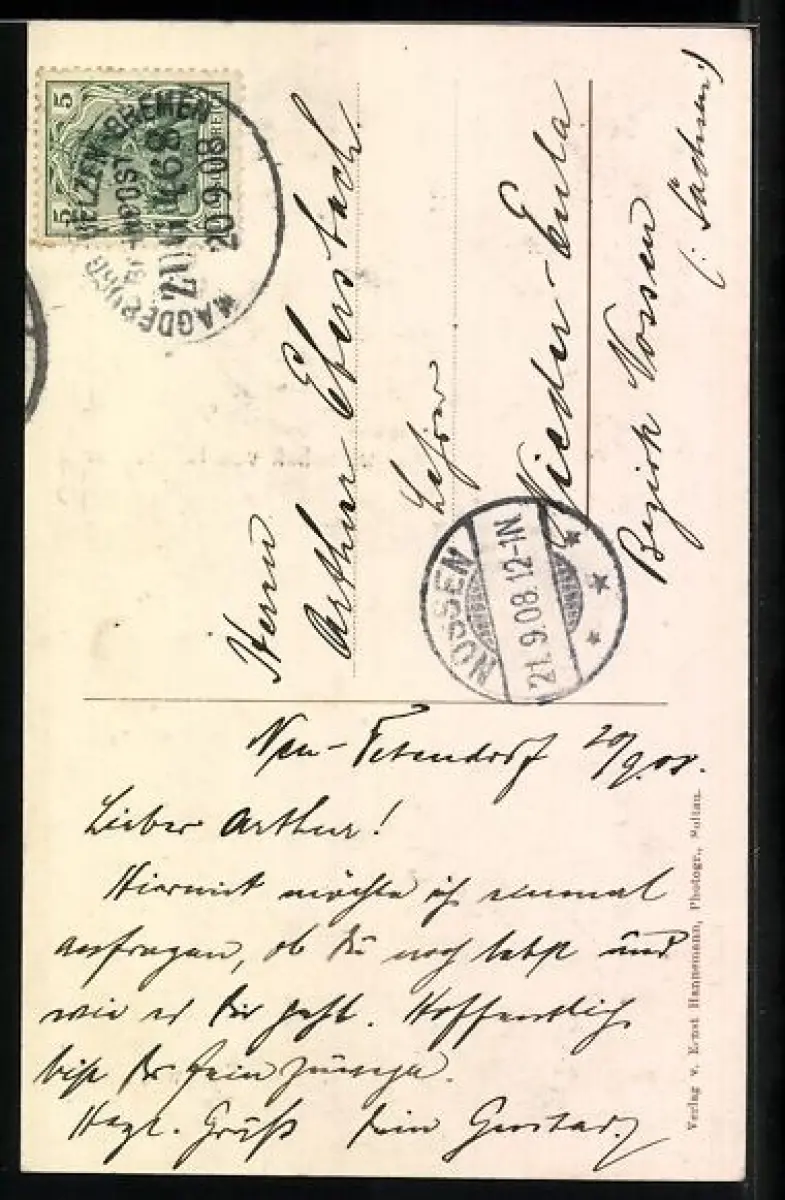 5 5
REICH
MAGDEBURG-UELZEN-BREMEN
BAHNPOST
ZUG 168
20 9 08
Herrn
Arthur Ebersbach.
Lehrer
Nieder-Eula
Bezirk Nossen
(: Sachsen :)
NOSSEN
21. 9. 08. 12-1N.
Neu-Tetendorf 20/9.08.
Lieber Arthur!
Hiermit möchte ich einmal
anfragen, ob Du noch lebst und
wie es Dir geht. Hoffentlich
bist Du fein zuwege.
Hezl. Gruß Dein Gustav.
Verlag v. Ernst Hannemann, Photogr., Soltau.